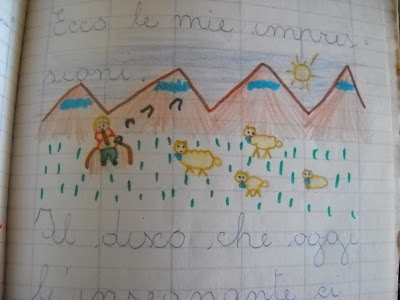 Ecco le mie impres-
sioni.
Il disco che oggi
l'insegnante ci